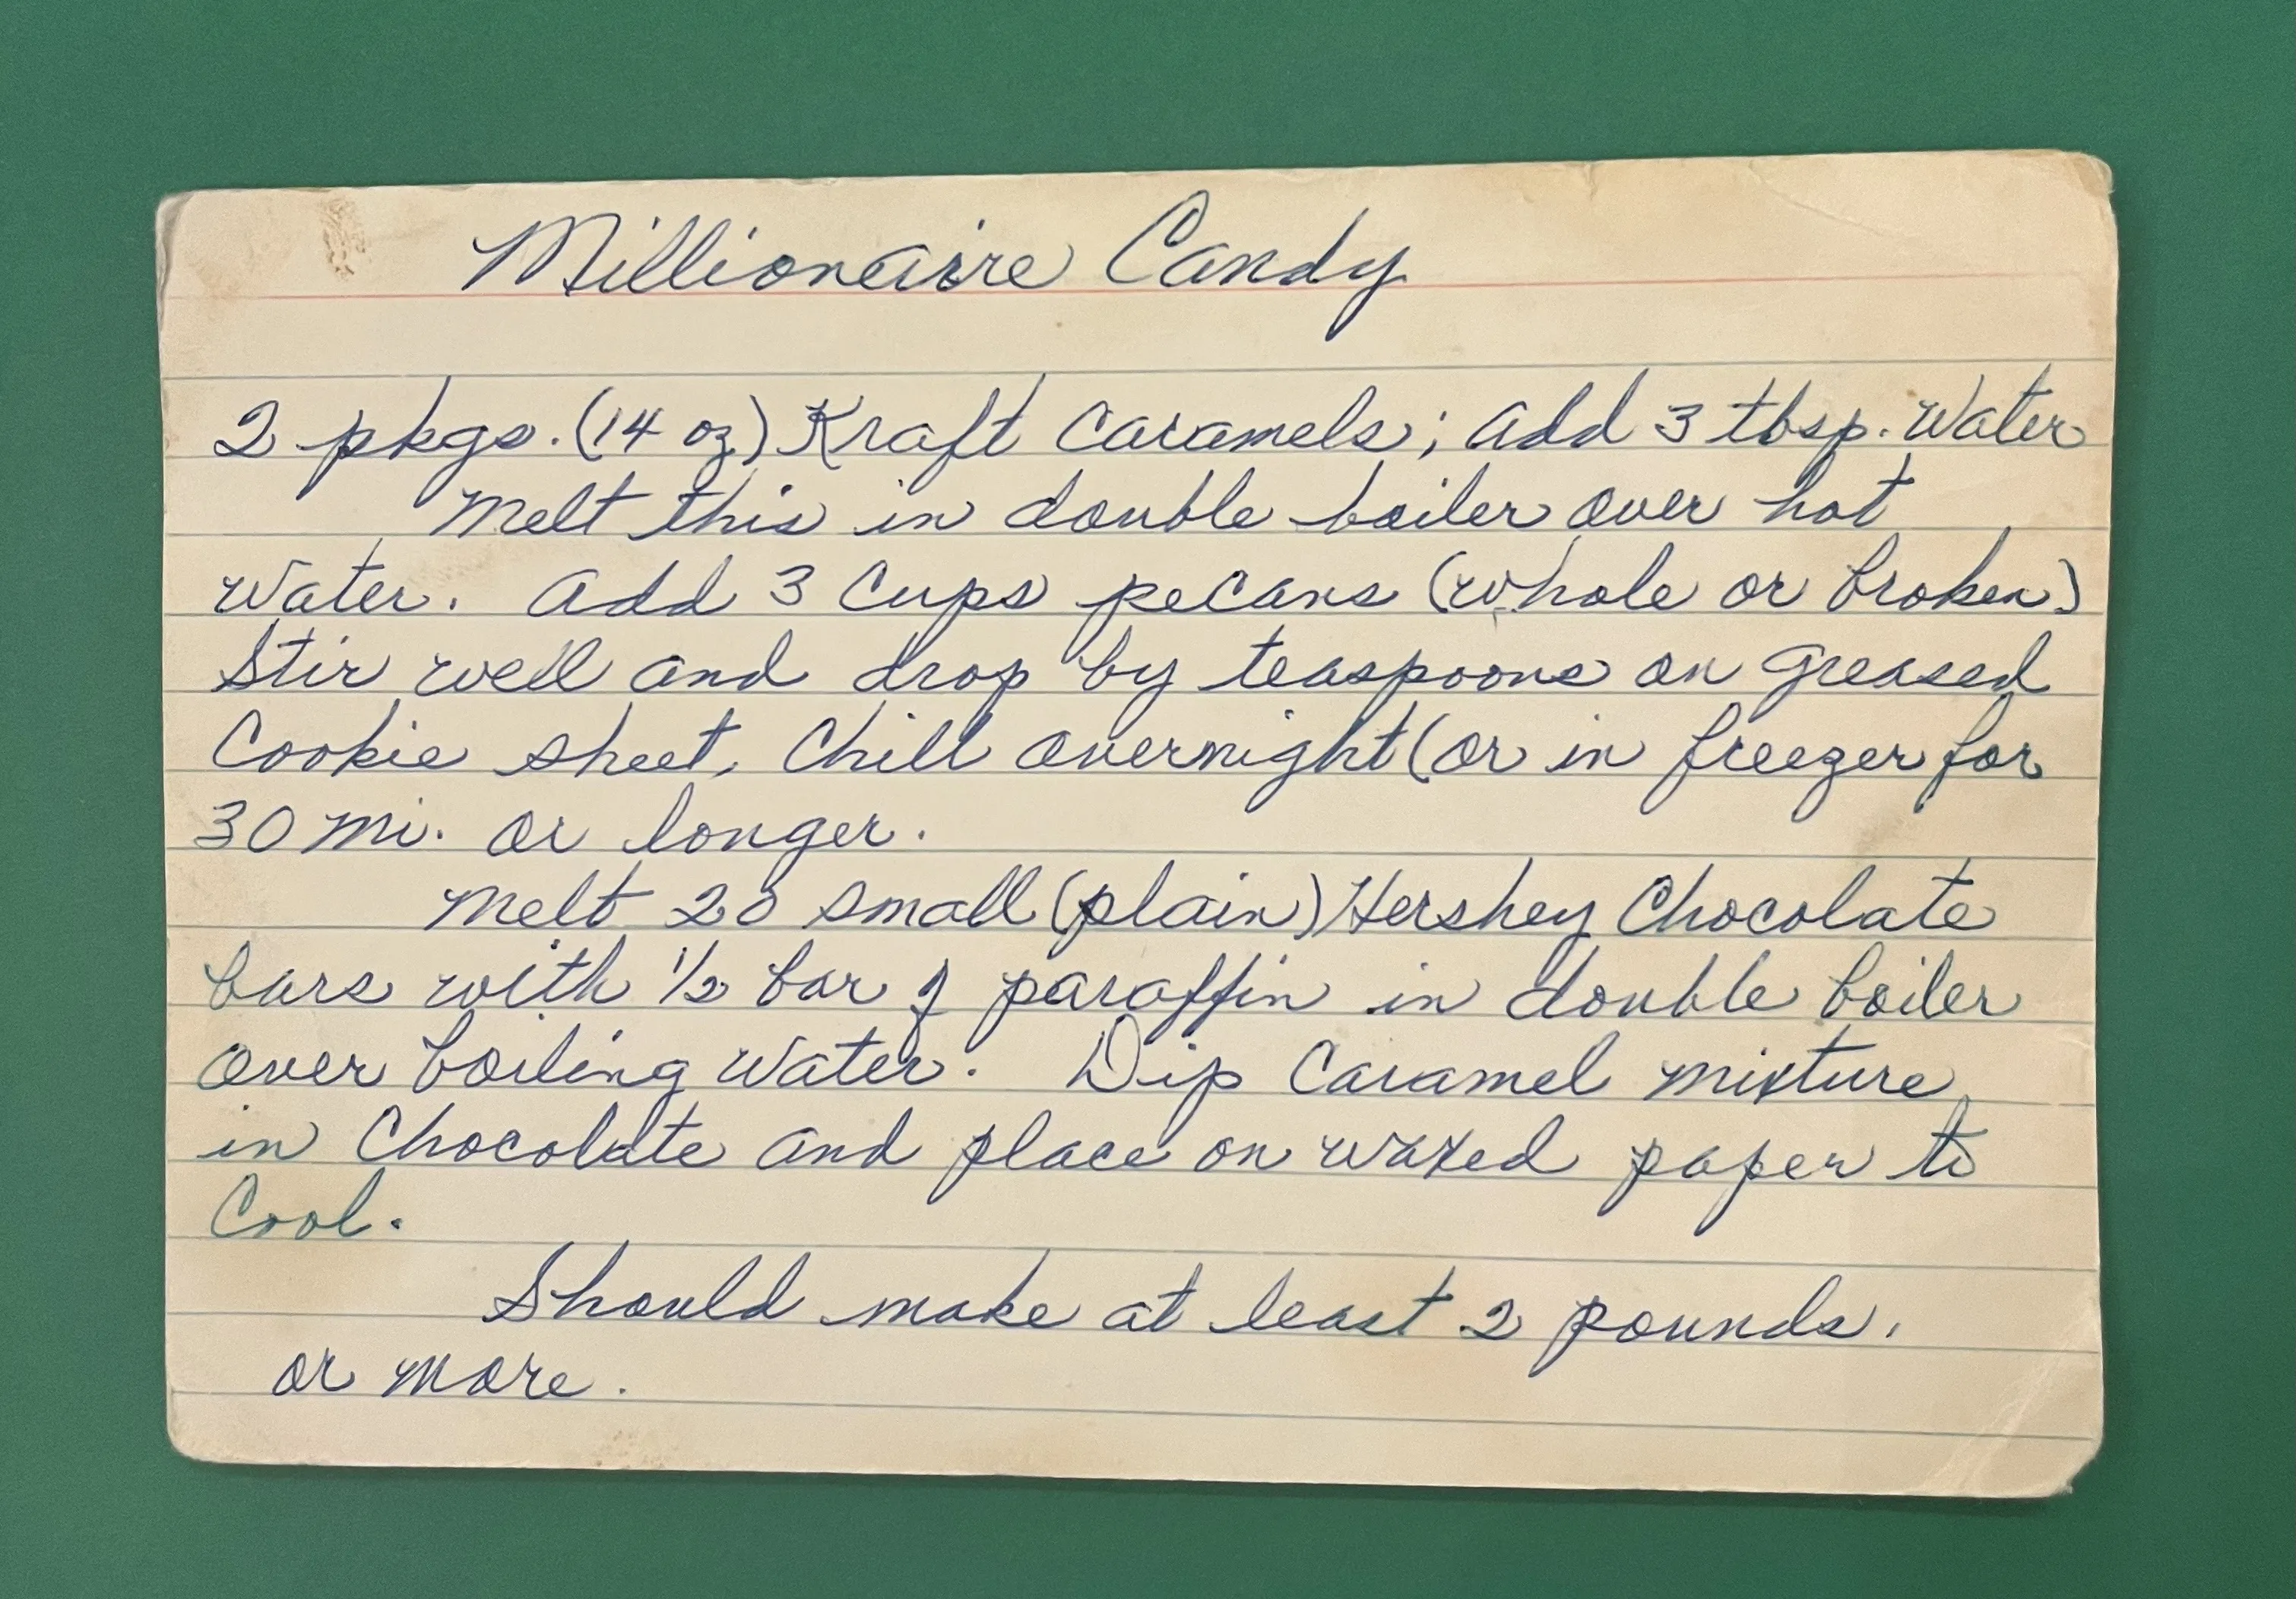 Millionaire Candy
2 pkgs. (14 oz) Kraft Caramels; add 3 tbsp. Water
Melt this in double boiler over hot
Water. Add 3 Cups pecans (whole or broken)
Stir well and drop by teaspoons on greased
Cookie sheet. Chill overnight (or in freezer for
30 mi. or longer.
Melt 20 small (plain) Hershey Chocolate
bars with 1/2 bar of paraffin in double boiler
over boiling Water. Dip Caramel mixture
in Chocolate and place on waxed paper to
Cool.
Should make at least 2 pounds.
or more.